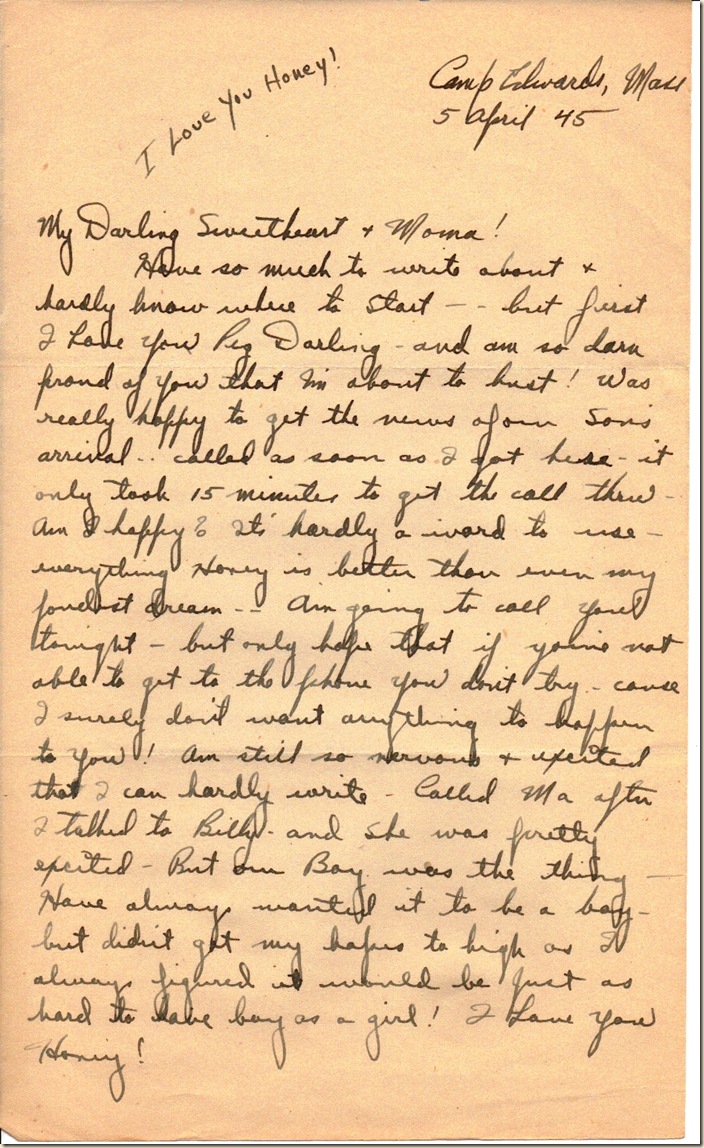 I Love You Honey!
Camp Edwards, Mass
5 April 45
My Darling Sweetheart + Moma!
Have so much to write about +
hardly know where to start - - but first
I Love You Peg Darling - and am so darn
proud of you that I'm about to bust! Was
really happy to get the news of our Son's
arrival - - called as soon as I got here - it
only took 15 minutes to get the call threw -
Am I happy? It's hardly a word to use -
everything Honey is better than even my
fondest dream - - Am going to call you
tonight - but only hope that if you're not
able to get to the phone you don't try - cause
I surely don't want anything to happen
to you! Am still so nervous + excited
that I can hardly write - Called Ma after
I talked to Billy - and she was pretty
excited - But our Boy was the thing -
Have always wanted it to be a boy -
but didn't get my hopes to high as I
always figured it would be just as
hard to have boy as a girl! I Love You
Honey!